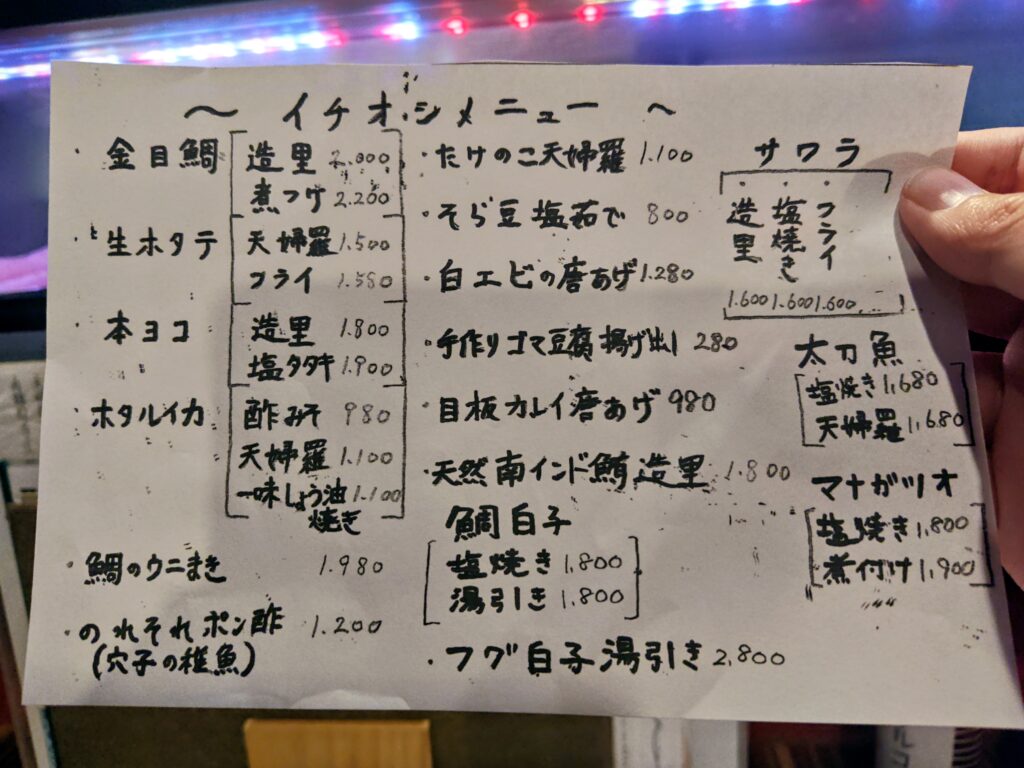 〜 イチオシメニュー 〜
・金目鯛 造里 2.000
煮つけ 2.200
・生ホタテ 天婦羅 1.500
フライ 1.580
・本ヨコ 造里 1.800
塩タタキ 1.900
・ホタルイカ 酢みそ 980
天婦羅 1.100
一味しょう油焼き 1.100
・鯛のウニまき 1.980
・のれそれポン酢 1.200
(穴子の稚魚)
・たけのこ天婦羅 1.100
・そら豆塩茹で 800
・白エビの唐あげ 1.280
・手作りゴマ豆腐揚げ出し 280
・目板カレイ唐あげ 980
・天然南インド鮪造里 1.800
鯛白子
塩焼き 1,800
湯引き 1,800
・フグ白子湯引き 2,800
サワラ
・フライ 1.600
・塩焼き 1.600
・造里 1.600
太刀魚
塩焼き 1,680
天婦羅 1,680
マナガツオ
塩焼き 1,800
煮付け 1,900